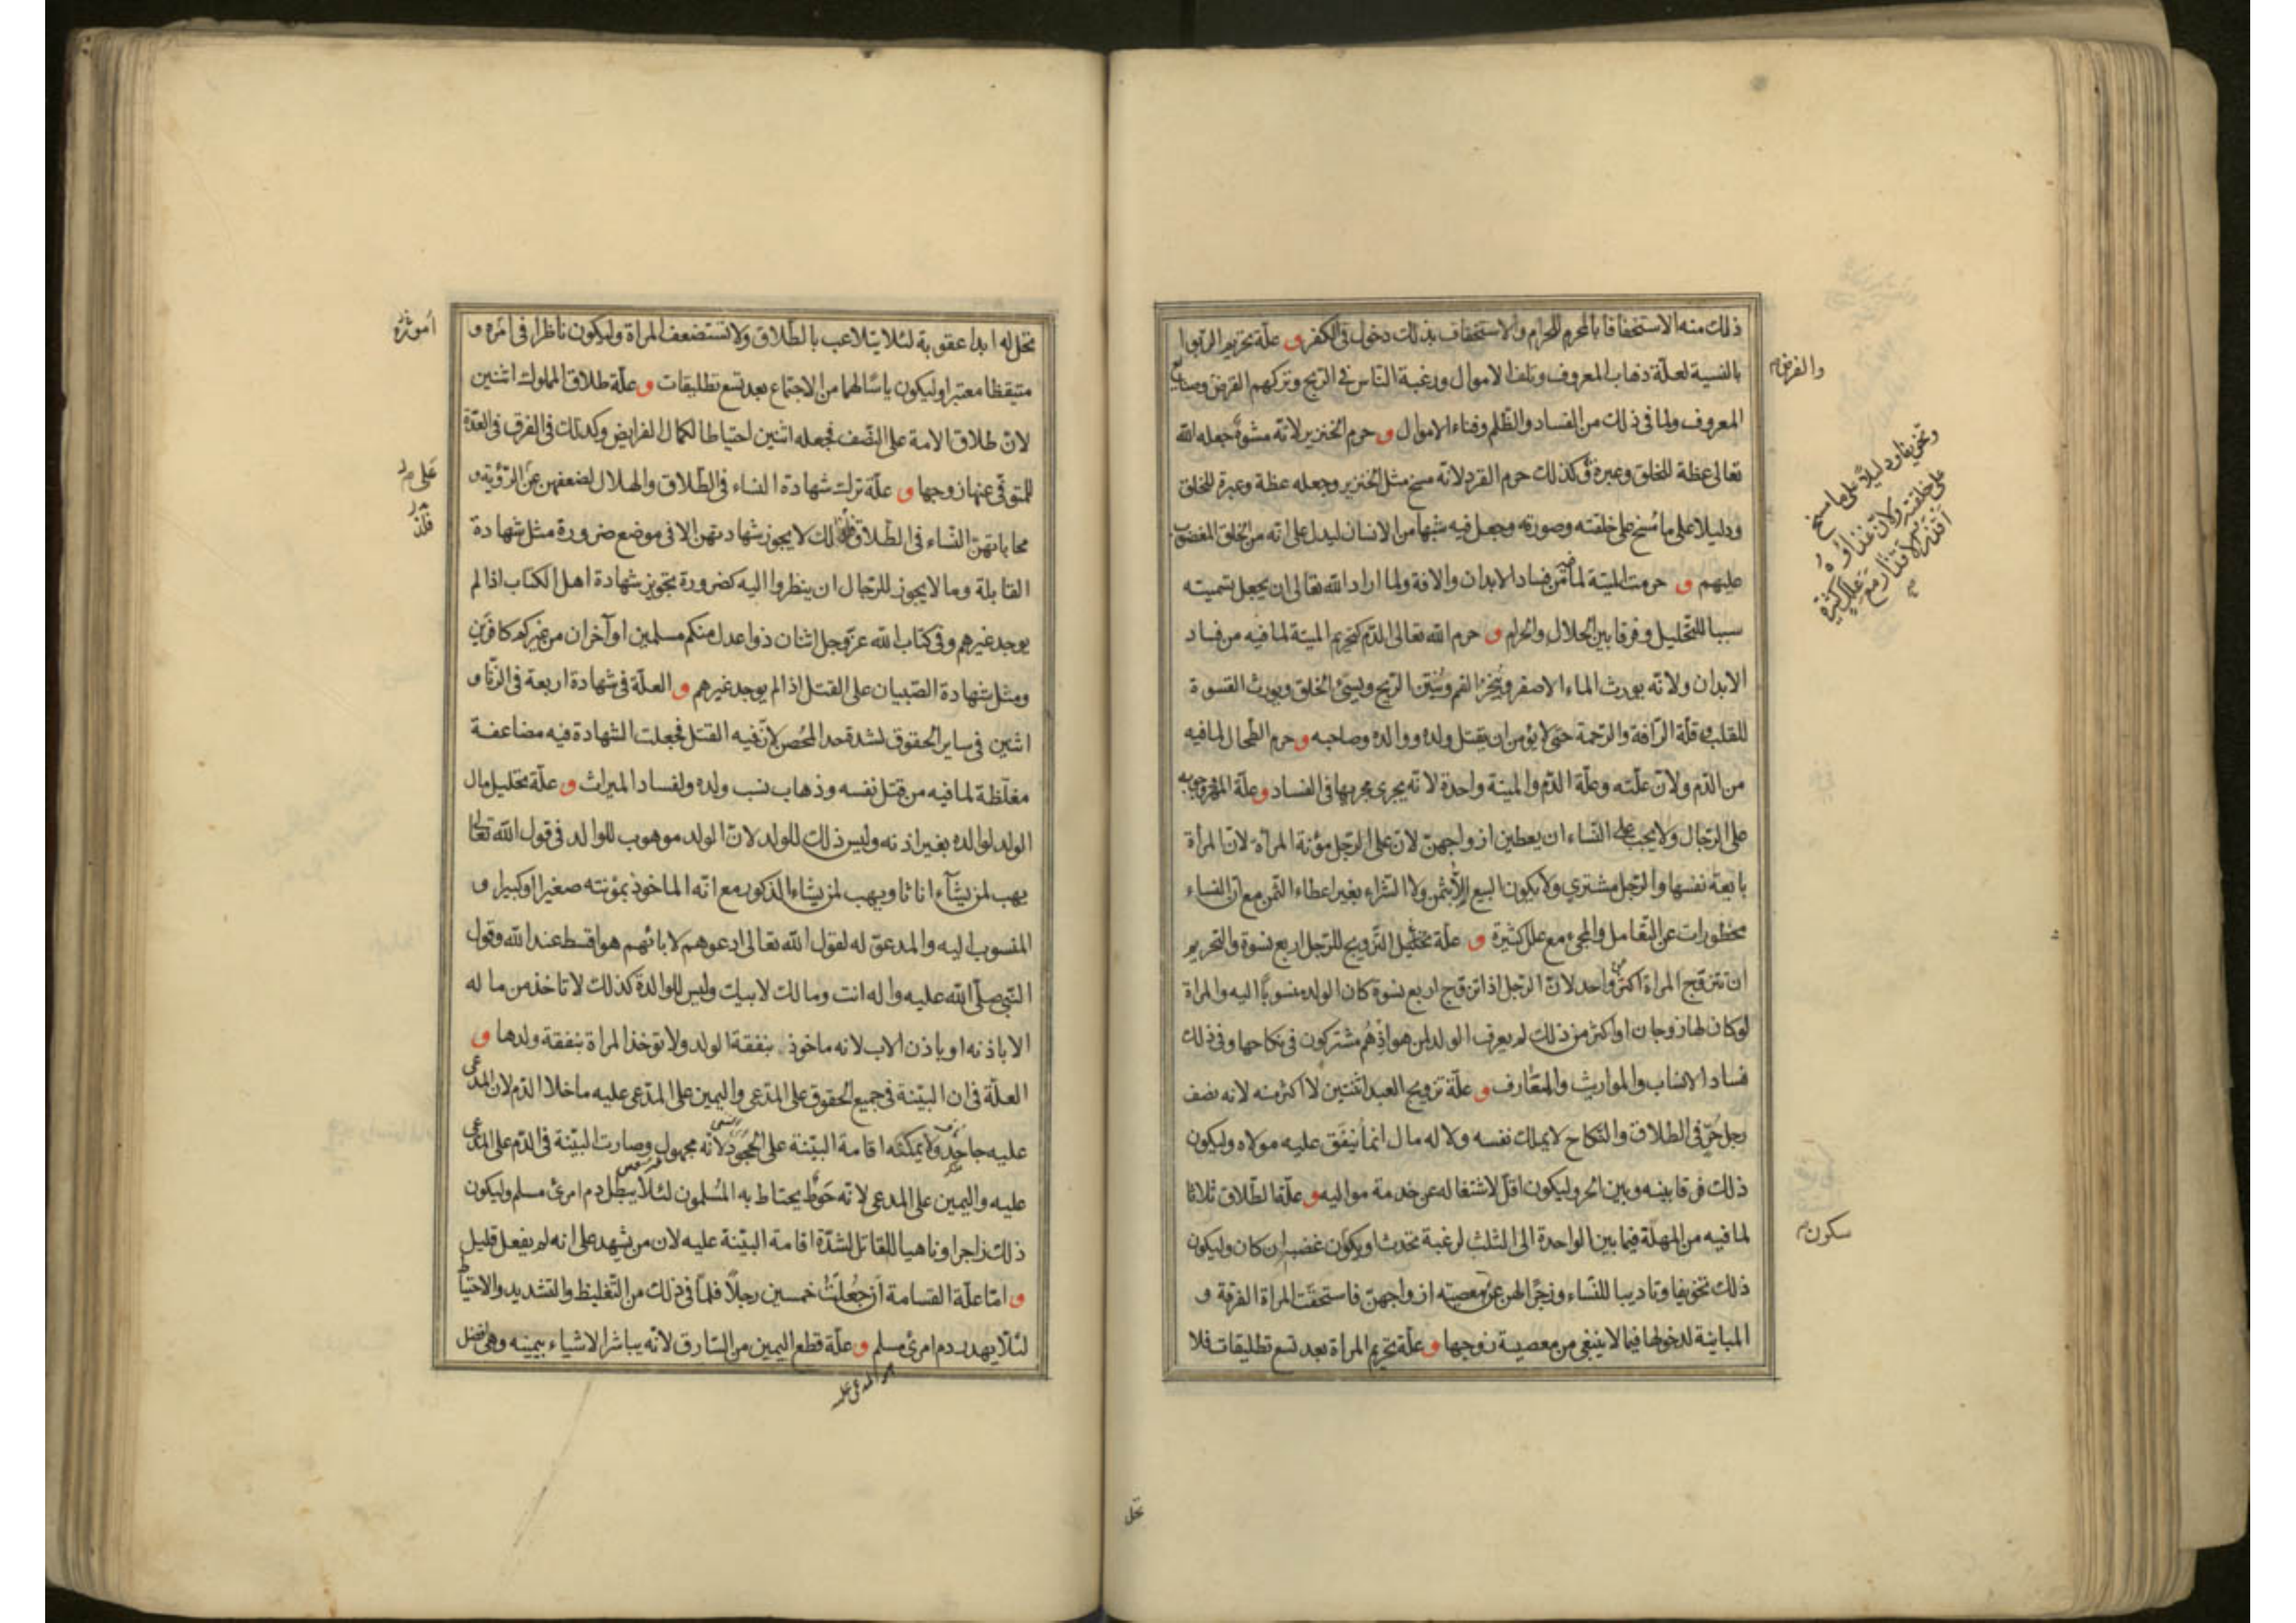 ذلك منه الاستخفافا بالمحرم للحرام والاستخفاف بذلك دخول في الكفر و علّة تحريم الرّبوا
بالنسية لعلّة ذهاب المعروف وتلف الاموال ورغبة النّاس في الرّبح وتركهم القرض وصنايع
والفرض
المعروف ولما في ذلك من الفساد والظّلم وفناء الاموال و حرم الخنزير لانّه مشوّه جعله الله
تعالى عظة للخلق وعبرة و كذلك حرم القرد لانّه مسخ مثل الخنزير وجعله عظة وعبرة للخلق
وتخويفا ودليلا على ما مسخ
على خلقته ولان غذاؤه
اقذر الاقذار مع علل كثيرة
ودليلا على ما مُسخ على خلقته وصورته وجعل فيه شبها من الانسان ليدل على انّه من الخلق المغضوب
عليهم و حرمت الميتة لما فيه من فساد الابدان والافة ولما اراد الله تعالى ان يجعل تسميته
سببا للتّحليل وفرقا بين الحلال والحرام و حرم الله تعالى الدّم كتحريم الميتة لما فيه من فساد
الابدان ولانّه يورث الماء الاصفر ويُبخر الفم وينتن الرّيح ويسيئ الخلق ويورث القسوة
للقلب وقلّة الرّافة والرّحمة حتى لا يؤمن ان يقتل ولده ووالده وصاحبه و حرم الطّحال لما فيه
من الدّم ولانّ علّته وعلّة الدّم والميتة واحدة لانّه يجرى مجريها في الفساد و علّة المهر ووجوبه
على الرّجال ولا يجب على النّساء ان يعطين ازواجهنّ لانّ على الرّجل مؤنة المراة لانّ المرأة
بايعة نفسها والرّجل مشتري ولا يكون البيع الّا بثمن ولا الشّراء بغير اعطاء الثّمن مع انّ النساء
محظورات عن التّعامل والمجيء مع علل كثيرة و علّة تحليل التّزويج للرّجل اربع نسوة والتحريم
ان تتزوّج المراة اكثر من واحد لانّ الرّجل اذا تزوّج اربع نسوة كان الولد منسوبًا اليه والمراة
لو كان لها زوجان او اكثر من ذلك لم يعرف الولد لمن هو اذ هُم مشتركون في نكاحها وفي ذلك
فساد الانساب والمواريث والمعارف و علّة تزويج العبد اثنتين لا اكثر منه لانه نصف
رجل حُرّ في الطلاق والنّكاح لا يملك نفسه ولا له مال انما يُنفَق عليه مولاه وليكون
ذلك فرقا بينه وبين الحر وليكون اقلّ لاشتغاله عن خدمة مواليه و علّة الطّلاق ثلاثا
لما فيه من المهلة فيما بين الواحدة الى الثلث لرغبة تحدث او يكون غضب ان كان وليكون
سكون
ذلك تخويفا وتاديبا للنّساء وزجرًا لهن عن معصيته ازواجهنّ فاستحقّت المراة الفرقة و
المباينة لدخولها فيما لا ينبغي من معصية زوجها و علّة تحريم المراة بعد تسع تطليقات فلا
تحل
تحل له ابدا عقوبة لئلا يتلاعب بالطّلاق ولا تستضعف المراة وليكون ناظرا في امره و
اموره
متيقظا معتبرا وليكون ياسًا لهما من الاجتماع بعد تسع تطليقات و علّة طلاق المملوك اثنين
لانّ طلاق الامة على النّصف فجعله اثنين احتياطا لكمال الفرايض وكذلك في الفرق في العدّة
للمتوفّى عنها زوجها و علّة ترك شهادة النساء في الطّلاق والهلال لضعفهنّ عن الرّؤية و
محاباتهنّ النّساء في الطّلاق فلذلك لا يجوز شهادتهن الا في موضع ضرورة مثل شهادة
القابلة وما لا يجوز للرّجال ان ينظروا اليه كضرورة تجويز شهادة اهل الكتاب اذا لم
يوجد غيرهم وفي كتاب الله عزّ وجل اثنان ذوا عدل منكم مسلمين او آخران من غيركم كافرَين
ومثل شهادة الصّبيان على القتل اذا لم يوجد غيرهم و العلّة في شهادة اربعة في الزّنا و
اثنين في ساير الحقوق لشدة حد المُحصن لانّ فيه القتل فجعلت الشهادة فيه مضاعفة
مغلّظة لما فيه من قتل نفسه وذهاب نسب ولده ولفساد الميراث و علّة تحليل مال
الولد لوالده بغير اذنه وليس ذلك للولد لانّ الولد موهوب للوالد في قول الله تعالى
يهب لمن يشآء اناثا ويهب لمن يشاء الذكور مع انّه الماخوذ بمؤنته صغيرا وكبيرا و
المنسوب اليه والمدعوّ له لقول الله تعالى ادعوهم لابائهم هو اقسط عند الله وقول
النّبي صلّى الله عليه واله انت ومالك لابيك وليس للوالدة كذلك لا تاخذ من ماله
الا باذنه او باذن الاب لانه ماخوذ بنفقة الولد ولا توخذ المراة بنفقة ولدها و
العلّة في ان البيّنة في جميع الحقوق على المدّعى واليمين على المدّعى عليه ماخلا الدّم لان المدّعى
عليه جاحد ولا يمكنه اقامة البيّنة على الجحود لانّه مجهول وصارت البيّنة في الدّم على المدّعى
عليه واليمين على المدعى لانّه حَوط يحتاط به المُسلمون لئلا يبطل دم امرئ مسلم وليكون
ذلك زاجرا وناهيا للقاتل لشدّة اقامة البيّنة عليه لان من يشهد على انه لم يفعل قليل
و امّا علّة القسامة ان جُعلت خمسين رجلًا فلما في ذلك من التّغليظ والتشديد والاحتياط
لئلّا يهدر دم امرئ مسلم و علّة قطع اليمين من السّارق لانّه يباشر الاشياء بيمينه وهي افضل